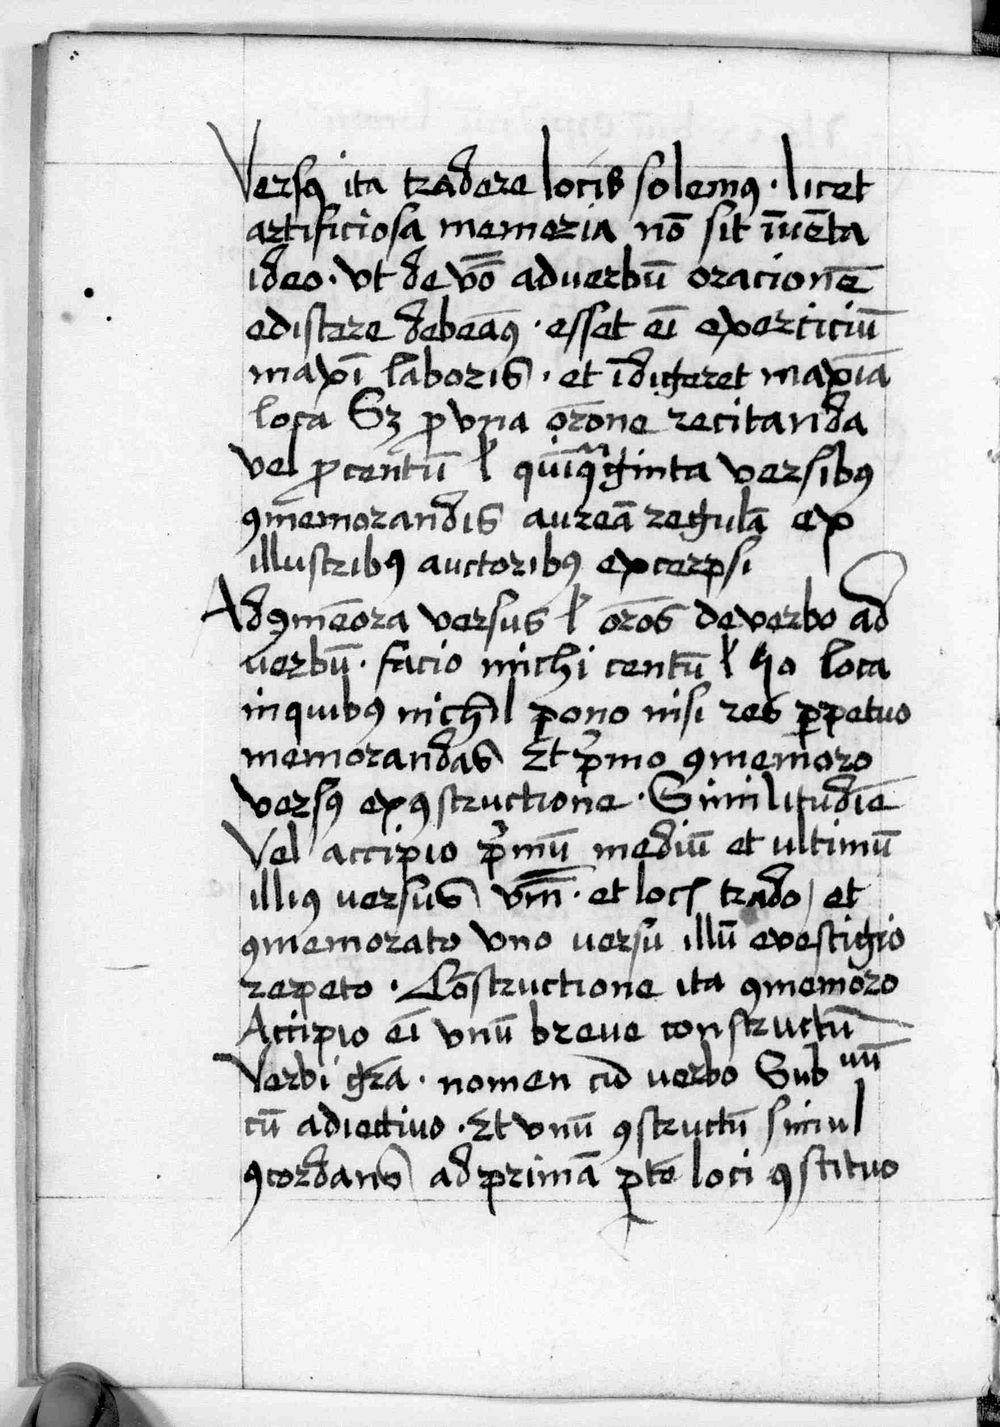 Versꝰ ita tradere locis solemꝰ · licet
artificiosa memoria nō sit īuēta
ideo · vt de v̄b̄o ad verbū oracionē
ediscere debeāꝰ · esset eī exercitiū
maxī laboris · et īdigeret maxīa
loca Sꝫ ꝓ vna or̄one recitanda
vel ꝓ centū ł quīq̄ginta versibꝰ
ꝯmemorandis aureā regulā ex
illustribꝰ auctoribꝰ excerpsi
Ad ꝯmēora versus ł or̄os de verbo ad
verbū · facio michi centū ł 50 loca
in quibꝰ nich̄l pono nisi res ꝑpetuo
memorandas Et p̄mo ꝯmemoro
versꝰ ex ꝯstructione · Similitudīe
Vel accipio p̄mū mediū et ultimū
illiꝰ versus vnū · et loc trado et
ꝯmemorato vno versū illū evestigio
repeto · Cōstructione ita ꝯmemoro
Accipio eī vnū breve constructū
Verbi grā · nomen cū verbo Subuū
cū adiectivo · Et vnū ꝯstructū simul
ꝯcordans ad primā ꝑtē loci ꝯstituo